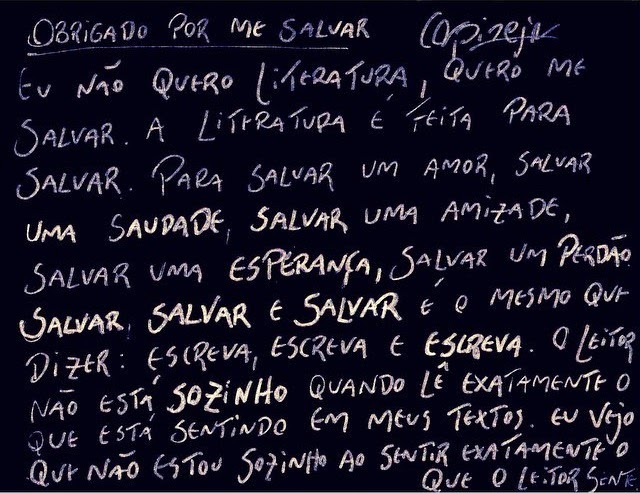 OBRIGADO POR ME SALVAR Carpinejar
EU NÃO QUERO LITERATURA, QUERO ME
SALVAR. A LITERATURA É FEITA PARA
SALVAR. PARA SALVAR UM AMOR, SALVAR
UMA SAUDADE, SALVAR UMA AMIZADE,
SALVAR UMA ESPERANÇA, SALVAR UM PERDÃO.
SALVAR, SALVAR E SALVAR É O MESMO QUE
DIZER: ESCREVA, ESCREVA E ESCREVA. O LEITOR
NÃO ESTÁ SOZINHO QUANDO LÊ EXATAMENTE O
QUE ESTÁ SENTINDO EM MEUS TEXTOS. EU VEJO
QUE NÃO ESTOU SOZINHO AO SENTIR EXATAMENTE O
QUE O LEITOR SENTE